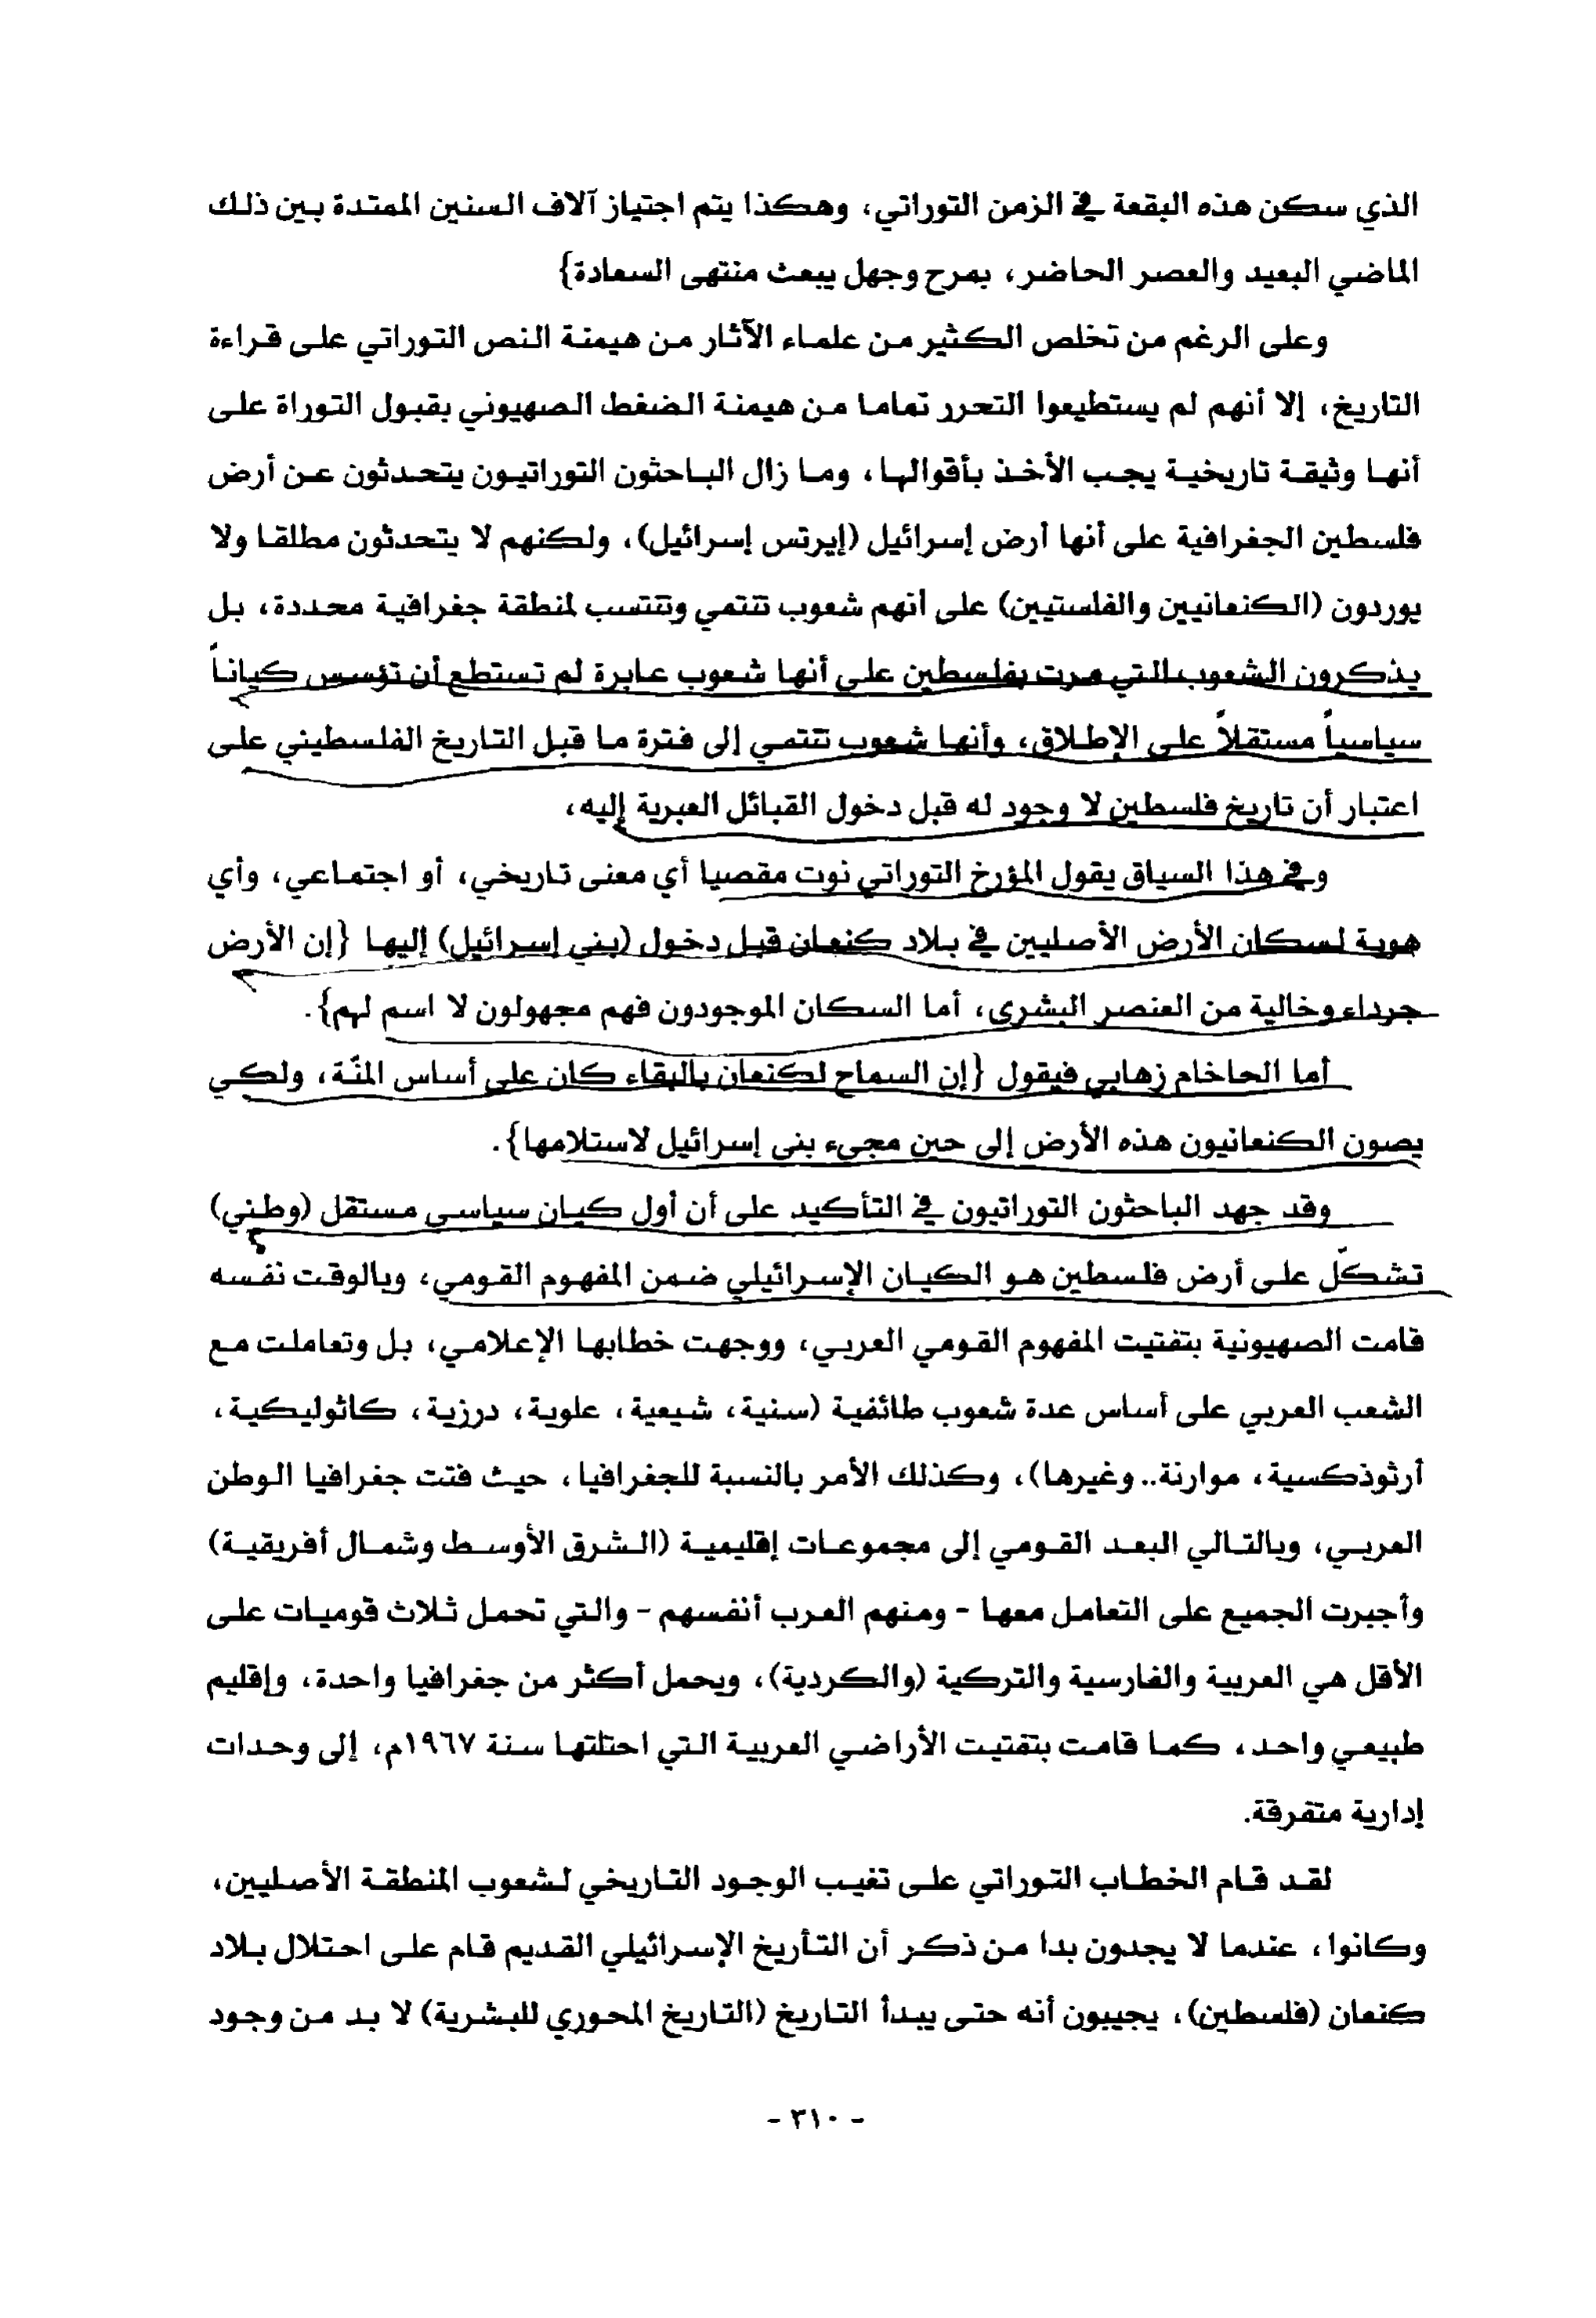 الذي سكن هذه البقعة في الزمن التوراتي، وهكذا يتم اجتياز آلاف السنين الممتدة بين ذلك
الماضي البعيد والعصر الحاضر، بمرح وجهل يبعث منتهى السعادة}
وعلى الرغم من تخلص الكثير من علماء الآثار من هيمنة النص التوراتي على قراءة
التاريخ، إلا أنهم لم يستطيعوا التحرر تماما من هيمنة الضغط الصهيوني بقبول التوراة على
أنها وثيقة تاريخية يجب الأخذ بأقوالها، وما زال الباحثون التوراتيون يتحدثون عن أرض
فلسطين الجغرافية على أنها أرض إسرائيل (إيرتس إسرائيل)، ولكنهم لا يتحدثون مطلقا ولا
يوردون (الكنعانيين والفلستيين) على انهم شعوب تنتمي وتنتسب لمنطقة جغرافية محددة، بل
يذكرون الشعوب التي مرت بفلسطين على أنها شعوب عابرة لم تستطع أن تؤسس كياناً
سياسياً مستقلاً على الإطلاق، وأنها شعوب تنتمي إلى فترة ما قبل التاريخ الفلسطيني على
اعتبار أن تاريخ فلسطين لا وجود له قبل دخول القبائل العبرية إليه،
وفي هذا السياق يقول المؤرخ التوراتي نوت مقصيا أي معنى تاريخي، أو اجتماعي، وأي
هوية لسكان الأرض الأصليين في بلاد كنعان قبل دخول (بني إسرائيل) إليها {إن الأرض
جرداء وخالية من العنصر البشري، أما السكان الموجودون فهم مجهولون لا اسم لهم}.
أما الحاخام زهابي فيقول {إن السماح لكنعان بالبقاء كان على أساس المنّة، ولكي
يصون الكنعانيون هذه الأرض إلى حين مجيء بني إسرائيل لاستلامها}.
وقد جهد الباحثون التوراتيون في التأكيد على أن أول كيان سياسي مستقل (وطني)
تشكّل على أرض فلسطين هو الكيان الإسرائيلي ضمن المفهوم القومي، وبالوقت نفسه
قامت الصهيونية بتفتيت المفهوم القومي العربي، ووجهت خطابها الإعلامي، بل وتعاملت مع
الشعب العربي على أساس عدة شعوب طائفية (سنية، شيعية، علوية، درزية، كاثوليكية،
أرثوذكسية، موارنة.. وغيرها)، وكذلك الأمر بالنسبة للجغرافيا، حيث فتت جغرافيا الوطن
العربي، وبالتالي البعد القومي إلى مجموعات إقليمية (الشرق الأوسط وشمال أفريقية)
وأجبرت الجميع على التعامل معها - ومنهم العرب أنفسهم - والتي تحمل ثلاث قوميات على
الأقل هي العربية والفارسية والتركية (والكردية)، ويحمل أكثر من جغرافيا واحدة، وإقليم
طبيعي واحد، كما قامت بتفتيت الأراضي العربية التي احتلتها سنة ١٩٦٧م، إلى وحدات
إدارية متفرقة.
لقد قام الخطاب التوراتي على تغيب الوجود التاريخي لشعوب المنطقة الأصليين،
وكانوا، عندما لا يجدون بدا من ذكر أن التأريخ الإسرائيلي القديم قام على احتلال بلاد
كنعان (فلسطين)، يجيبون أنه حتى يبدأ التاريخ (التاريخ المحوري للبشرية) لا بد من وجود
- ٣١٠ -